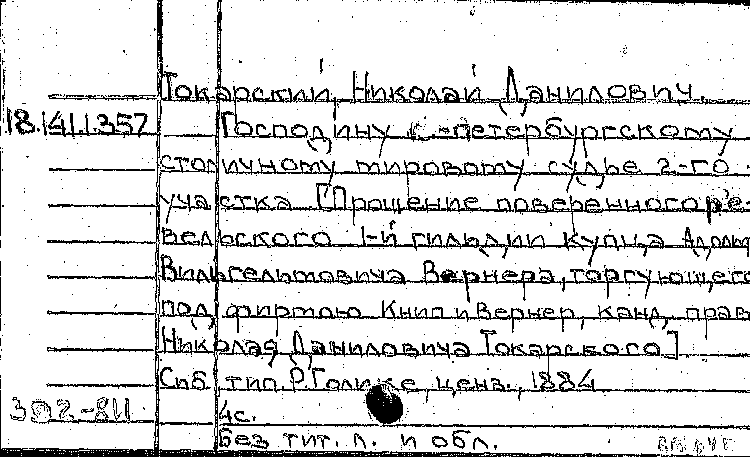 Токарский, Николай Данилович.
18.141.1.357
Господину С.-петербургскому
столичному мировому судье 2-го
участка [Прошение поверенного ре-
вельского 1-й гильдии купца Адольф
Вильгельмовича Вернера, торгующего
под фирмою Книп и Вернер, канд. прав
Николая Даниловича Токарского]
Спб. тип. Р. Голике, ценз., 1884
4с.
Без тит. л. и обл.